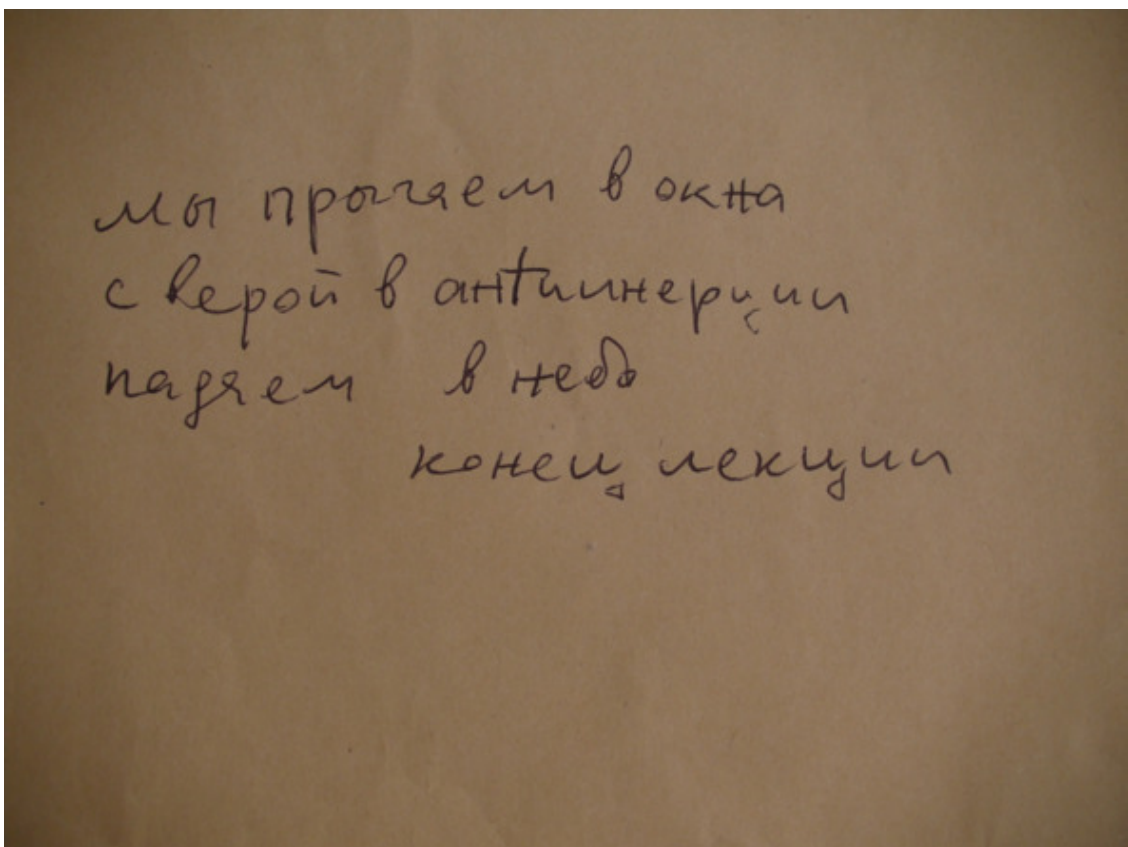 мы прыгаем в окна
с верой в антиинерции
падаем в небо
конец лекции